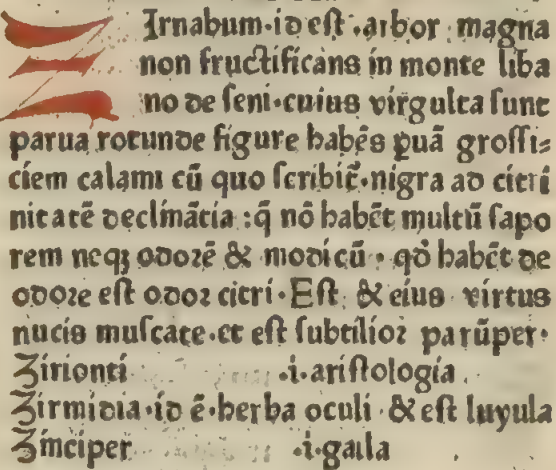 Zirnabum·id eſt·arbor magna
non fructificans in monte liba
no de ſeni·cuius virgulta ſunt
parua rotunde figure habẽs ꝑuã groſſi⸗
ciem calami cũ quo ſcribit̃·nigra ad citri
nitatẽ declinãtia :q̃ nõ habẽt multũ ſapo
rem neqꝫ odorẽ & modicũ · qđ habẽt de
odore eſt odor citri·Eſt & eius virtus
nucis muſcate·et eſt ſubtilior parũper·
Zirionti ·i·ariſtologia
Zirmidia·id ẽ·herba oculi & eſt luyula
Zinciper ·i·galla